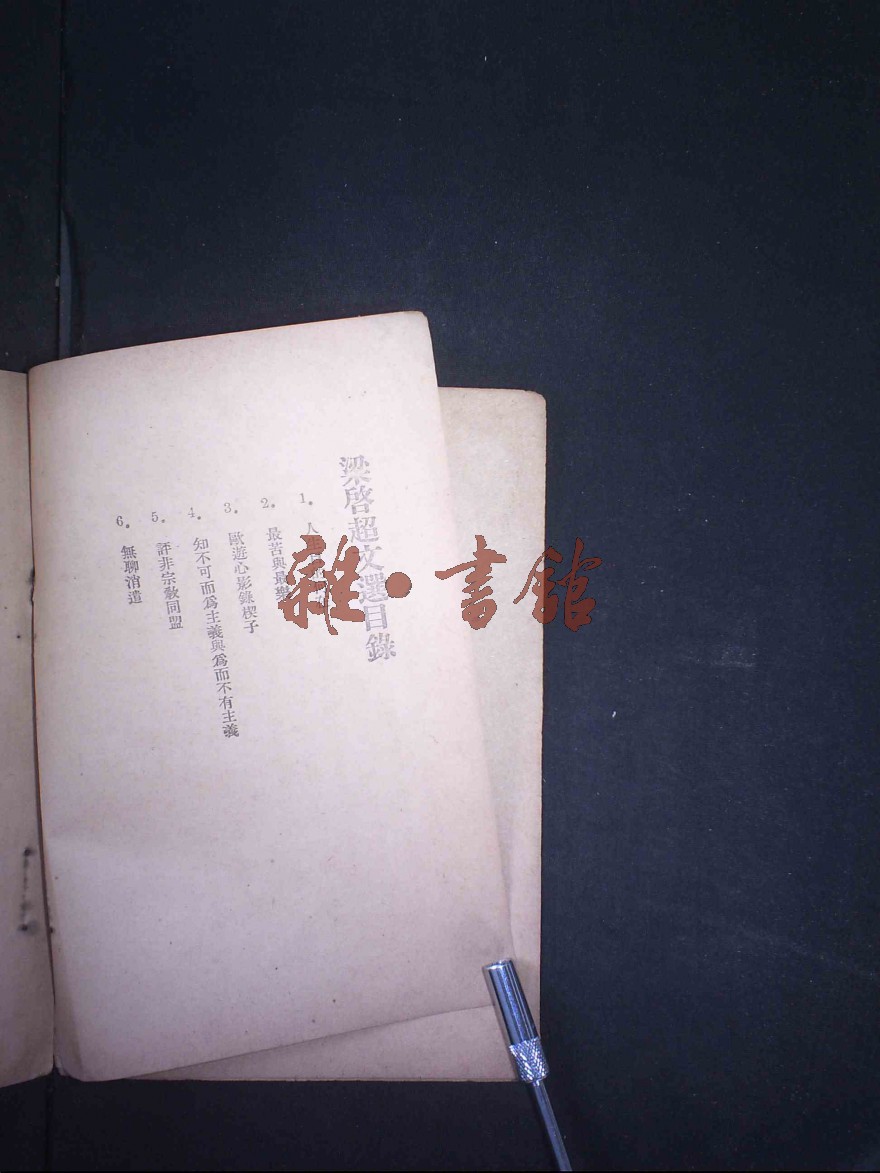 梁啓超文選目錄
1. 人生
2. 最苦與最樂
3. 歐遊心影錄楔子
4. 知不可而爲主義與爲而不有主義
5. 評非宗教同盟
6. 無聊消遣
雜·書館